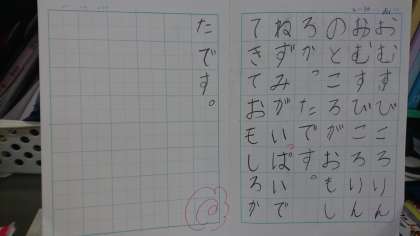 おむすびころりん
おむすびころりん
のところがおもし
ろかったです。
ねずみがいぱいで
てきておもしろか
たです。